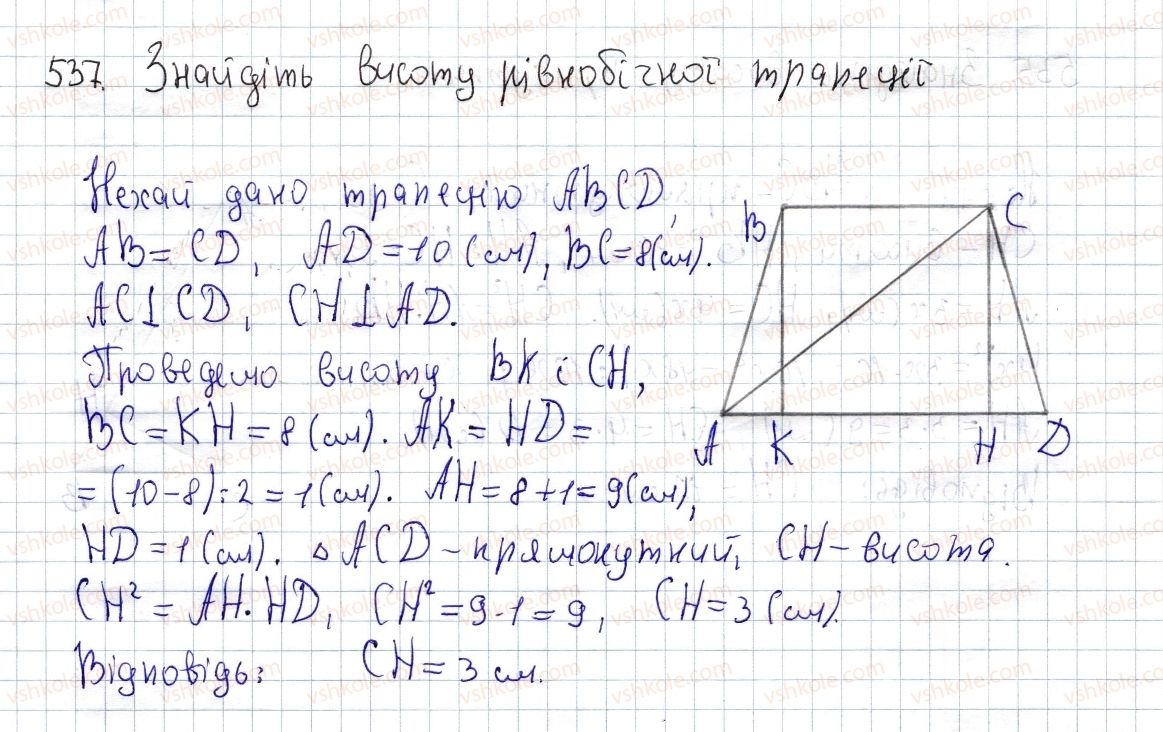 537. Знайдіть висоту рівнобічної трапеції
Нехай дано трапецію ABCD,
AB = CD, AD = 10 (см), BC = 8(см).
AC⊥CD, CH⊥AD.
Проведемо висоту BK і CH,
BC = KH = 8 (см). AK = HD =
= (10-8):2 = 1(см). AH = 8+1 = 9(см),
HD = 1(см). △ACD - прямокутний, CH - висота.
CH² = AH·HD, CH² = 9·1 = 9, CH = 3 (см).
Відповідь: CH = 3 см.
B
C
A
K
H
D
vshkole.com